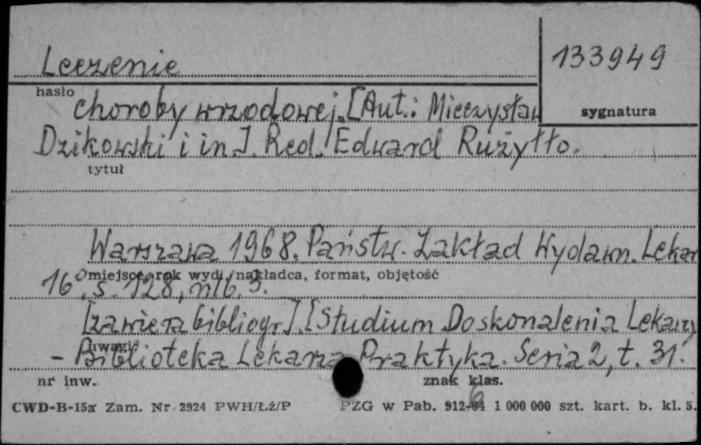 Leczenie
133949
hasło
choroby wrzodowej. [Aut.: Mieczysław
sygnatura
Dzikowski i in.]. Red. Edward Rużyłło.
tytuł
Warszawa 1968. Państw. Zakład Wydawn. Lekar
miejsce, rok wyd., nakładca, format, objętość
16°, s. 128, nlb. 3.
[zawiera bibliogr.]. [Studium Doskonalenia Lekarzy
uwagi
- Biblioteka Lekarza Praktyka. Seria 2, t. 31.
nr inw.
znak klas.
CWD-B-15a Zam. Nr 2924 PWH/Łż/P PZG w Pab. 912-64 1 000 000 szt. kart. b. kl. 5.